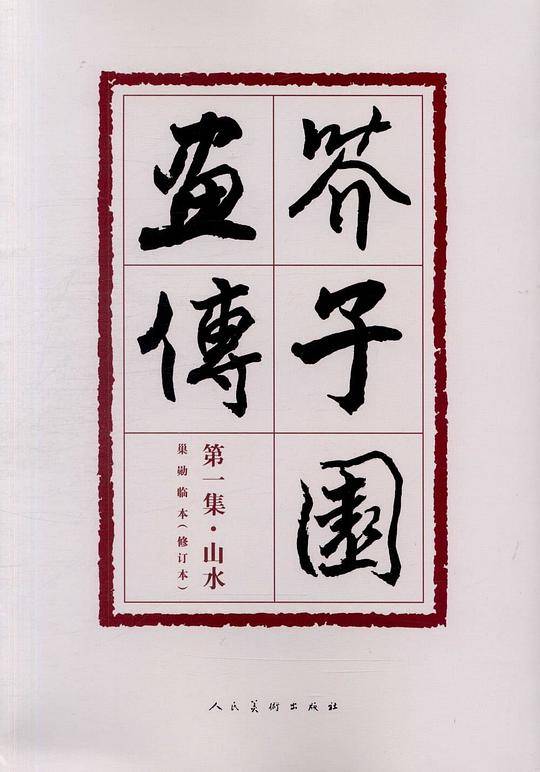 芥子園
畫傳
第一集·山水
巢勋临本（修订本）
人民美術出版社